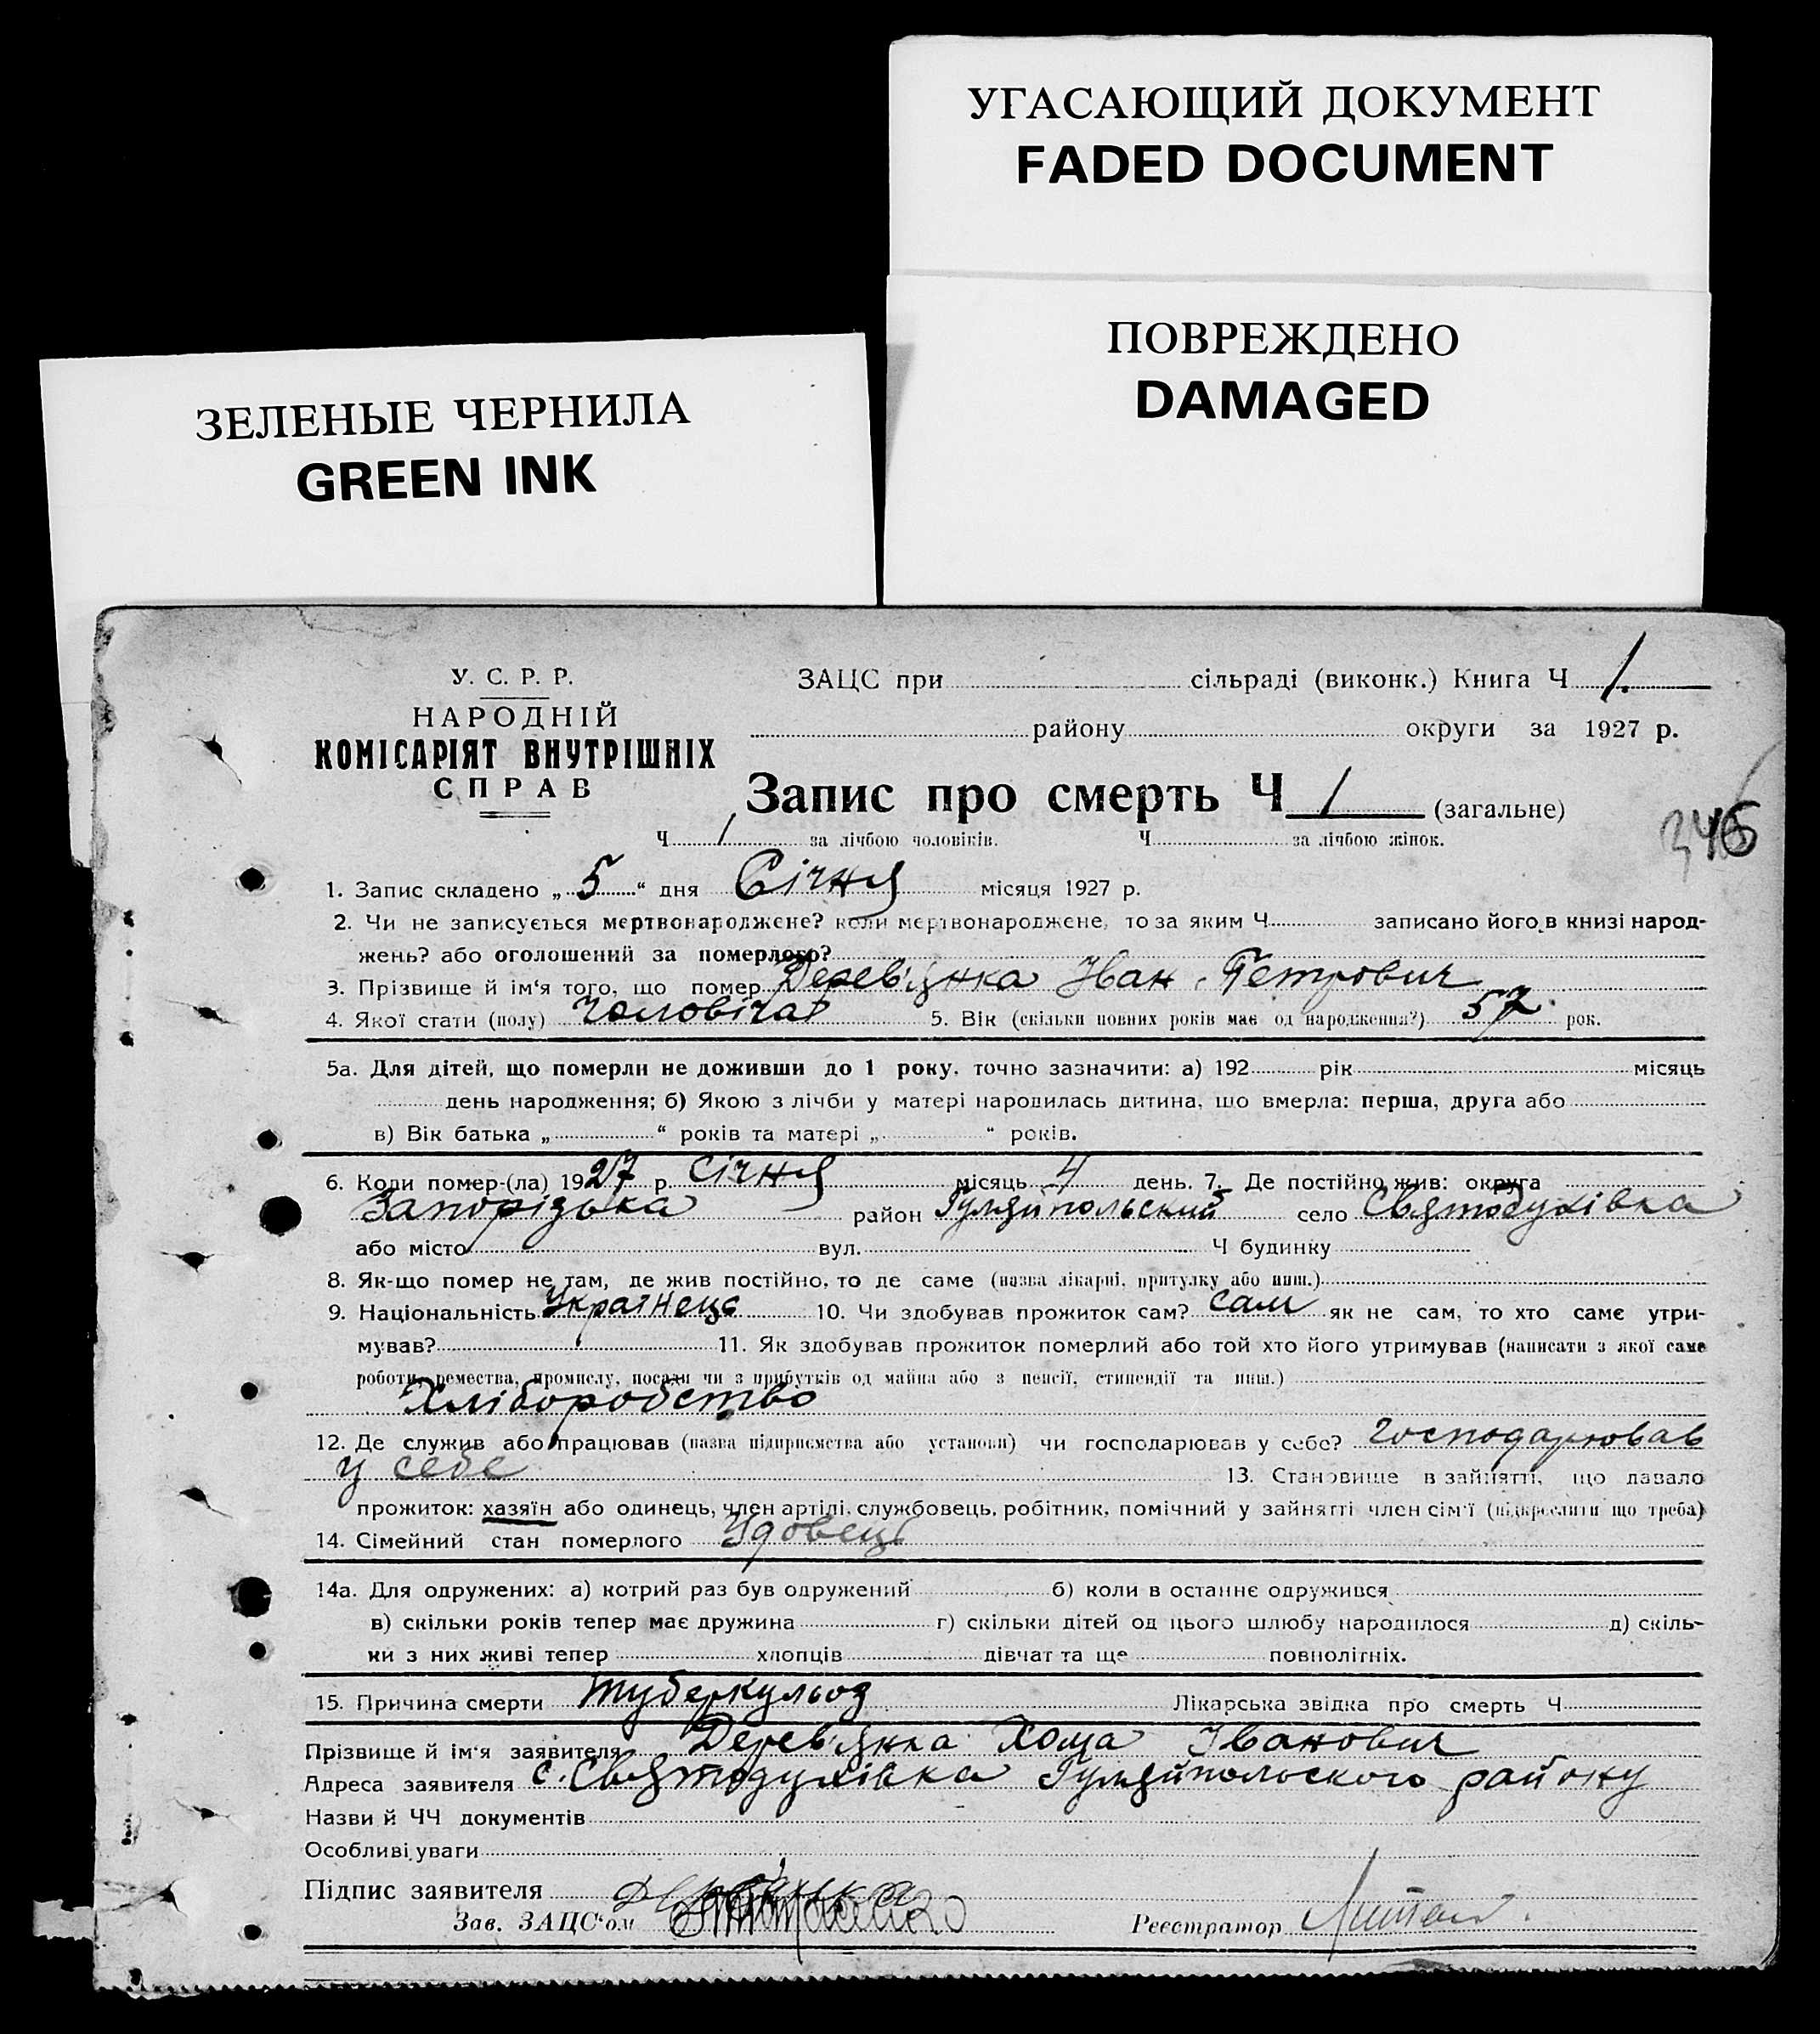 УГАСАЮЩИЙ ДОКУМЕНТ
FADED DOCUMENT
ПОВРЕЖДЕНО
DAMAGED
ЗЕЛЕНЫЕ ЧЕРНИЛА
GREEN INK
У. С. Р. Р.
НАРОДНІЙ
КОМІСАРІЯТ ВНУТРІШНІХ
СПРАВ
ЗАЦС при сільраді (виконк.) Книга Ч 1.
району округи за 1927 р.
Запис про смерть Ч 1 (загальне)
346
Ч 1 за лічбою чоловіків. Ч за лічбою жінок.
1. Запис складено „5“ дня Січня місяця 1927 р.
2. Чи не записується мертвонароджене? коли мертвонароджене, то за яким Ч записано його в книзі народ-
жень? або оголошений за померлого?
3. Прізвище й ім‘я того, що помер Дерев'янка Іван Петрович
4. Якої стати (полу) чоловіча 5. Вік (скільки повних років має од народження?) 57 рок.
5а. Для дітей, що померли не доживши до 1 року, точно зазначити: а) 192 рік місяць
день народження; б) Якою з лічби у матері народилась дитина, що вмерла: перша, друга або
в) Вік батька „ “ років та матері „ “ років.
6. Коли помер-(ла) 1927 р. Січня місяць 4 день. 7. Де постійно жив: округа
Запорізька район Гуляйпольский село Святодухівка
або місто вул. Ч будинку
8. Як-що помер не там, де жив постійно, то де саме (назва лікарні, притулку або инш.)
9. Національність Українець 10. Чи здобував прожиток сам? Сам як не сам, то хто саме утри-
мував? 11. Як здобував прожиток померлий або той хто його утримував (написати з якої саме
роботи, ремества, промислу, посади чи з прибутків од майна або з пенсії, стипендії та инш.)
Хліборобство
12. Де служив або працював (назва підприємства або установи) чи господарював у себе? Господарював
у себе 13. Становище в зайнятті, що давало
прожиток: хазяїн або одинець, член артілі, службовець, робітник, помічний у зайнятті член сім‘ї (підкреслити що треба)
14. Сімейний стан померлого Удовець
14а. Для одружених: а) котрий раз був одружений б) коли в останнє одружився
в) скільки років тепер має дружина г) скільки дітей од цього шлюбу народилося д) скіль-
ки з них живі тепер хлопців дівчат та ще повнолітніх.
15. Причина смерти туберкульоз Лікарська звідка про смерть Ч
Прізвище й ім‘я заявителя Дерев'янка Хома Іванович
Адреса заявителя с. Святодухівка Гуляйпольского району
Назви й ЧЧ документів
Особливі уваги
Підпис заявителя
Зав. ЗАЦС‘ом Реєстратор